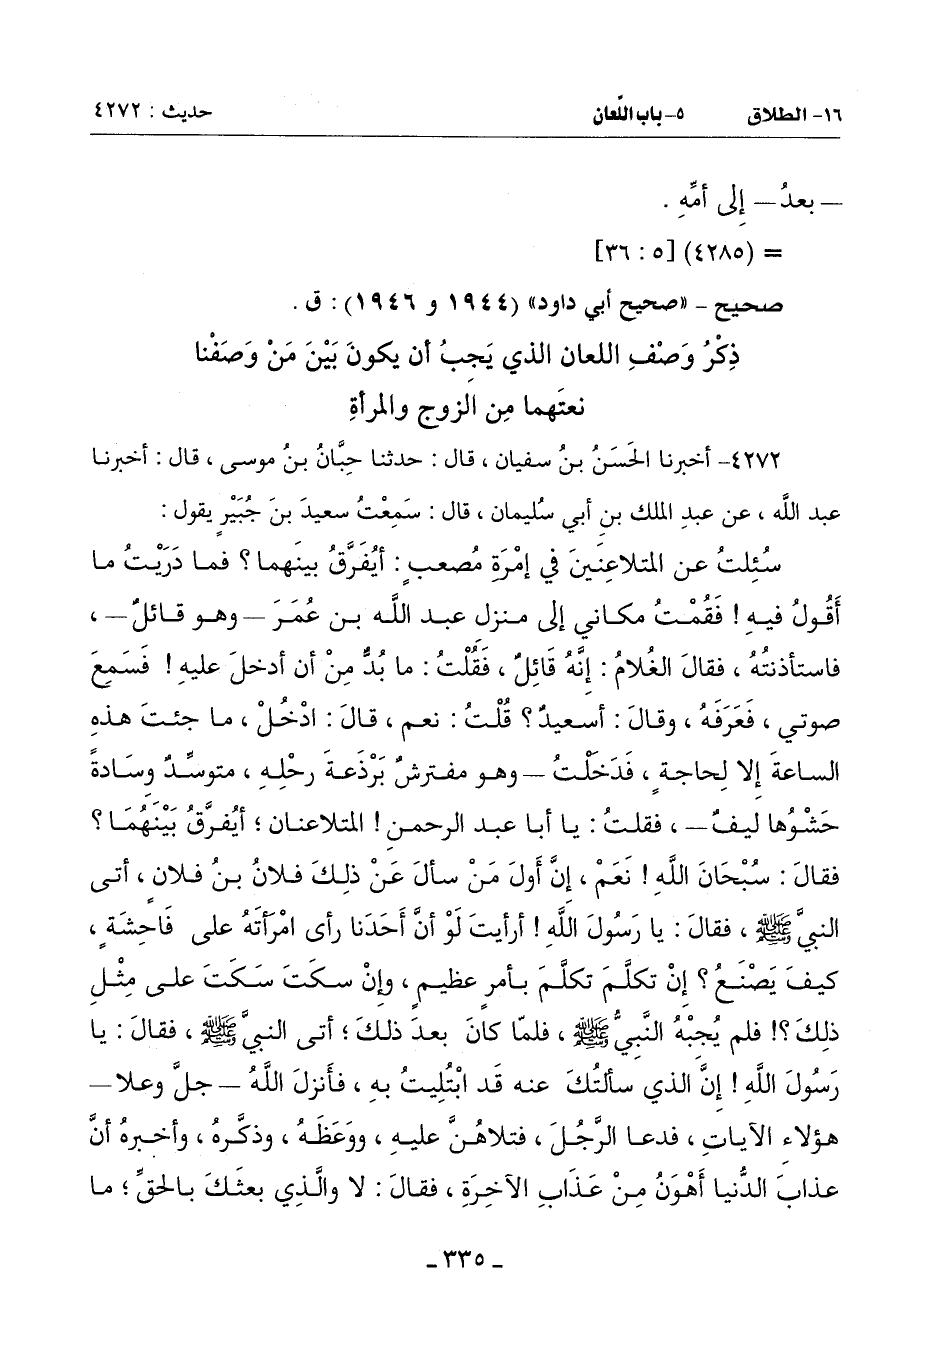 ١٦- الطلاق ٥- باب اللِّعان حديث : ٤٢٧٢
— بعدُ — إلى أمِّهِ .
= (٤٢٨٥) [٥ : ٣٦]
صحيح - «صحيح أبي داود» (١٩٤٤ و ١٩٤٦) : ق .
ذِكْرُ وَصْفِ اللعان الذي يَجِبُ أن يكونَ بَيْنَ مَنْ وَصَفْنا
نعتَهما مِن الزوجِ والمرأةِ
٤٢٧٢- أخبرنا الحَسَنُ بنُ سفيان ، قال : حدثنا حِبَّانُ بنُ موسى ، قال : أخبرنا
عبد اللَّه ، عن عبدِ الملك بنِ أبي سُليمان ، قال : سَمِعْتُ سعيدَ بنَ جُبَيْرٍ يقول :
سُئِلتُ عن المتلاعِنَينَ في إمْرَةِ مُصعبٍ : أيُفَرَّقُ بينَهما ؟ فما دَرَيْتُ ما
أَقُولُ فيهِ ! فَقُمْتُ مكاني إلى منزل عبد اللَّه بن عُمَرَ — وهو قائلٌ — ،
فاستأذنتُهُ ، فقالَ الغُلامُ : إنَّهُ قَائِلٌ ، فَقُلْتُ : ما بُدٌّ مِنْ أن أدخلَ عليهِ ! فَسَمِعَ
صوتي ، فَعَرَفَهُ ، وقالَ : أسعيدٌ ؟ قُلْتُ : نعم ، قالَ : ادْخُلْ ، ما جئتَ هذه
الساعةَ إلا لِحاجةٍ ، فَدَخَلْتُ — وهو مفترشٌ بَرْذَعةَ رحْلِهِ ، متوسِّدٌ وِسَادةً
حَشْوُها لِيفٌ — ، فقلتُ : يا أبا عبد الرحمنِ ! المتلاعنان ؛ أيُفرَّقُ بَيْنَهُمَا ؟
فقالَ : سُبْحَانَ اللَّهِ ! نَعَمْ ، إنَّ أَولَ مَنْ سألَ عَنْ ذلِكَ فلانُ بنُ فلانٍ ، أتى
النبيَّ ﷺ ، فقالَ : يا رَسُولَ اللَّهِ ! أرأيتَ لَوْ أنَّ أَحَدَنا رأى امْرَأتَهُ على فَاحِشَةٍ ،
كيفَ يَصْنَعُ ؟ إنْ تكلَّمَ تكلَّمَ بأمرٍ عظيمٍ ، وإنْ سكتَ سَكَتَ على مِثْلِ
ذلِكَ ؟! فلم يُجِبْهُ النَّبيُّ ﷺ ، فلمّا كانَ بعدَ ذلكَ ؛ أتى النبيَّ ﷺ ، فقالَ : يا
رَسُولَ اللَّهِ ! إنَّ الذي سألتُكَ عنه قَد ابْتُلِيتُ بهِ ، فأنزلَ اللَّهُ — جلَّ وعلا —
هؤلاءِ الآياتِ ، فدعا الرَّجُلَ ، فتلاهُنَّ عليهِ ، ووَعَظَهُ ، وذكَّرهُ ، وأخبرهُ أنَّ
عذابَ الدُّنيا أَهْوَنُ مِنْ عَذَابِ الآخِرَةِ ، فقالَ : لا والَّذي بعثكَ بالحقِّ ؛ ما
- ٣٣٥ -